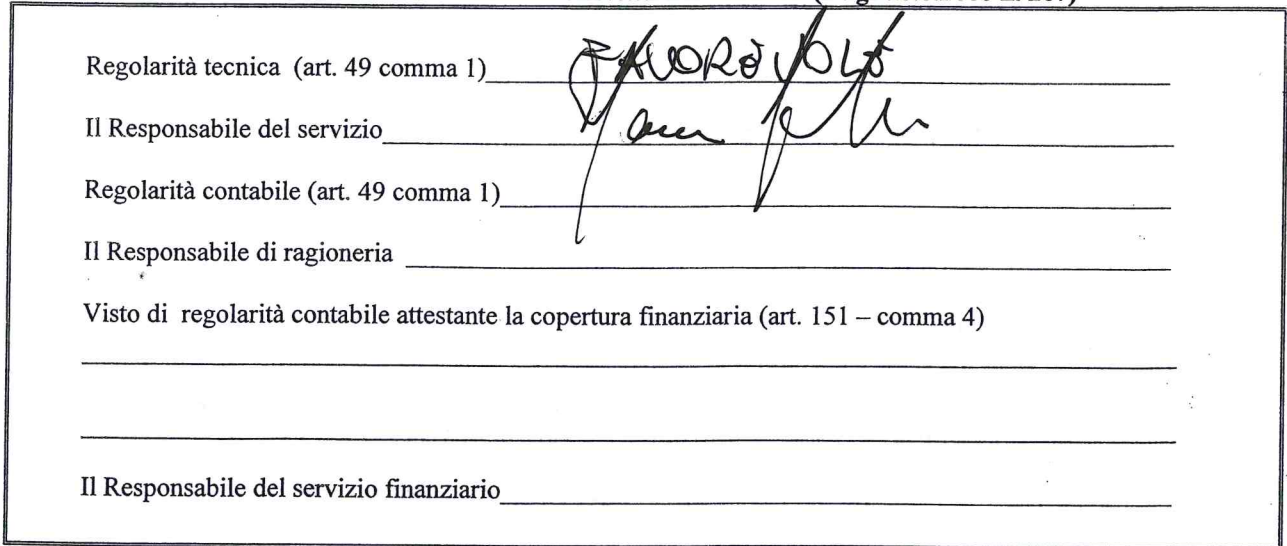 Regolarità tecnica (art. 49 comma 1) FAVOREVOLE
Il Responsabile del servizio
Regolarità contabile (art. 49 comma 1)
Il Responsabile di ragioneria
Visto di regolarità contabile attestante la copertura finanziaria (art. 151 – comma 4)
Il Responsabile del servizio finanziario